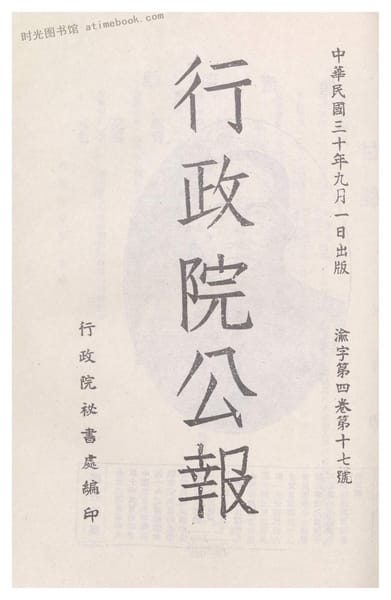 时光图书馆 atimebook.com
中華民國三十年九月一日出版
渝字第四卷第十七號
行政院公報
行政院祕書處編印